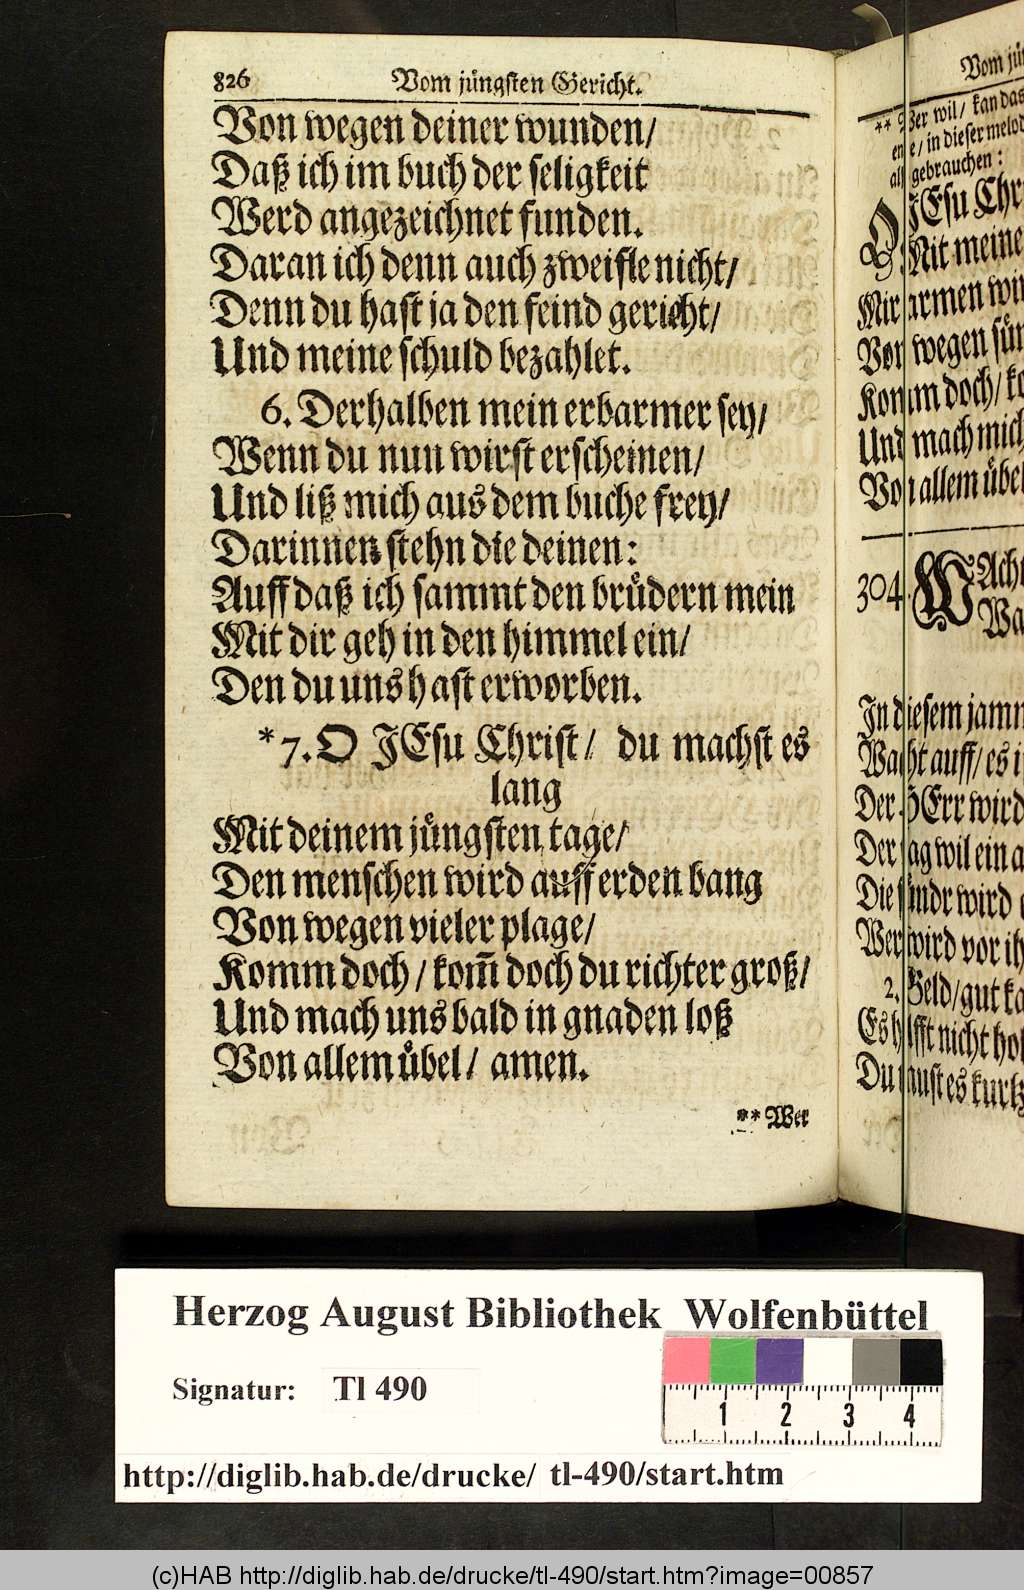 826 Vom jüngsten Gericht.
Von wegen deiner wunden/
Daß ich im buch der seligkeit
Werd angezeichnet funden.
Daran ich denn auch zweifle nicht/
Denn du hast ja den feind gericht/
Und meine schuld bezahlet.
6. Derhalben mein erbarmer sey/
Wenn du nun wirst erscheinen/
Und liß mich aus dem buche frey/
Darinnen stehn die deinen:
Auff daß ich sammt den brüdern mein
Mit dir geh in den himmel ein/
Den du uns hast erworben.
*7. O JEsu Christ/ du machst es
lang
Mit deinem jüngsten tage/
Den menschen wird auff erden bang
Von wegen vieler plage/
Komm doch/ kom̃ doch du richter groß/
Und mach uns bald in gnaden loß
Von allem übel/ amen.
** Wer
Vom
** Wer wil/ kan das
in dieser
gebrauchen:
O JEsu
Mit meine
Mir armen
Von wegen
Komm doch/
Und mach mich
Von allem
304. WAch
In diesem
Wacht auff/ es
Der HErr wird
Der tag wil ein
Die sündr wird
Wer wird vor
2. Geld/ gut
Es hilfft nicht
Du must es
Herzog August Bibliothek Wolfenbüttel
Signatur: Tl 490
1 2 3 4
http://diglib.hab.de/drucke/ tl-490/start.htm
(c)HAB http://diglib.hab.de/drucke/tl-490/start.htm?image=00857